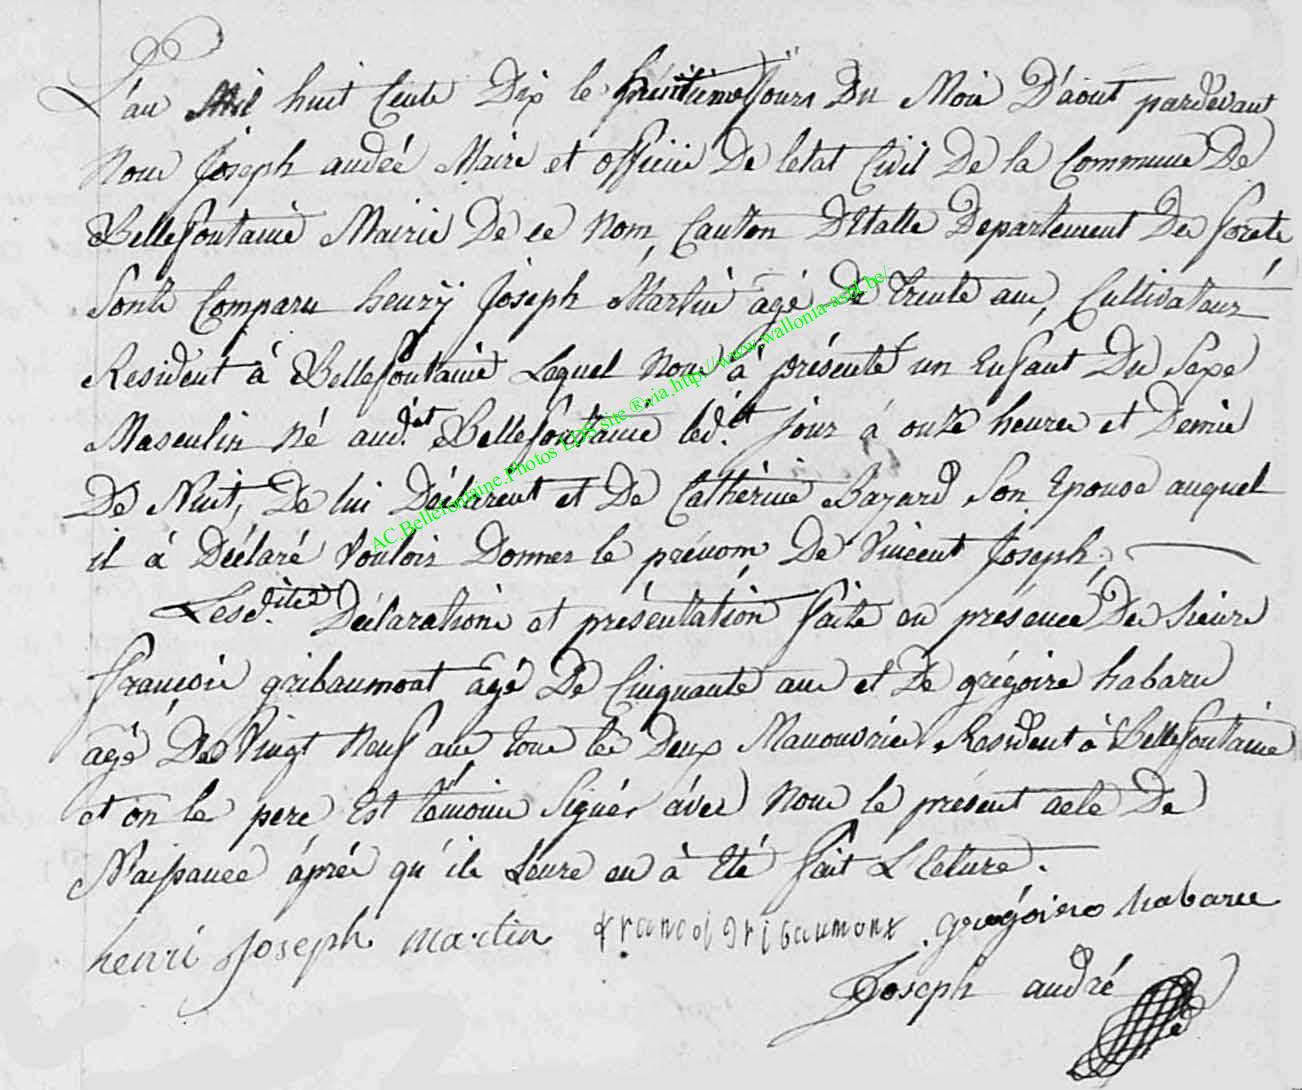 L'an Mil huit Cents Dix le huitieme Jours Du Mois D'aout pardevant
Nous Joseph andré Maire et officie De letat Civil De la Commune De
Bellefontaine Mairie De ce Nom, Canton D'Etalle Departement Des forets
Sont Comparu henry Joseph Martin agé de trente ans, Cultivateur
Resident à Bellefontaine Lequel Nous à présenté un Enfant Du Sexe
Masculin né aud.it Bellefontaine led.it jour á onze heures et Demie
De Nuit, De lui Déclarent et De Cathérine Bazard Son Epouse auquel
il à Déclaré Vouloir Donner le prénom, De Vincent Joseph;
Lesd.ites Déclarations et présentation faite en présence Des sieurs
François gribaumont agé De Cinquante ans et De grégoire habaru
agé De Vingt Neuf ans tous les Deux Manouvries Resident à Bellefontaine
et on le pere Est témoins Signés avec Nous le présent acte De
Naissance áprés qu'ils Leurs en à Eté fait Lecture.
henri Joseph martin francoi gribaumont gregoire habaru
Joseph andré
AC.Bellefontaine.Photos EDS site ®via.http://www.wallonia-asbl.be/